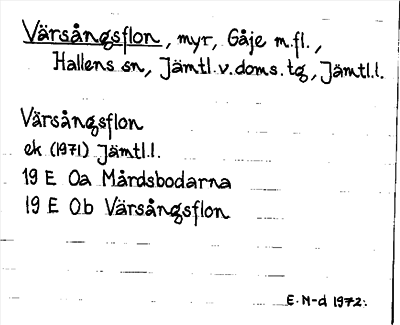 Värsångsflon, myr, Gåje m.fl.,
Hallens sn, Jämtl.v.doms.tg, Jämtl.l.
Värsångsflon
ek (1971) Jämtl.l.
19 E Oa Mårdsbodarna
19 E Ob Värsångsflon
E. N-d 1972.